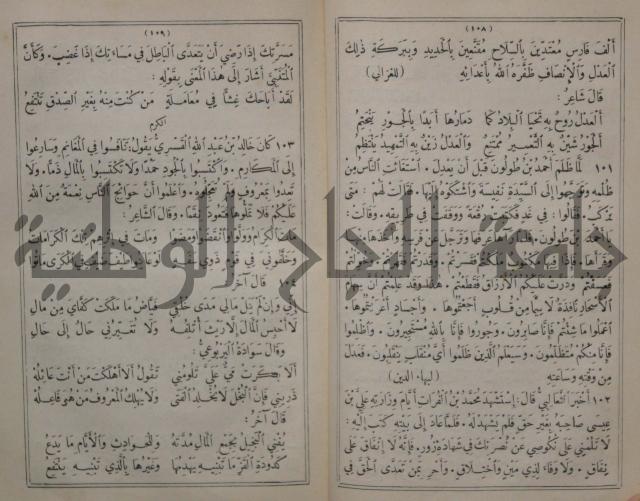 (١٠٨)
أَلْفَ فَارِسٍ مُعْتَدِّينَ بِالسِّلَاحِ مُقَنَّعِينَ بِالْحَدِيدِ وَبِبَرَكَةِ ذٰلِكَ
الْعَدْلِ وَالْإِنْصَافِ ظَفَّرَهُ اللهُ بِأَعْدَائِهِ (للغزالي)
قَالَ شَاعِرٌ:
الْعَدْلُ رُوحٌ بِهِ تَحْيَا الْبِلَادُ كَمَا دَمَارُهَا أَبَدًا بِالْجَوْرِ يَنْحَتِمُ
الْجَوْرُ شَيْنٌ بِهِ التَّعْمِيرُ مُمْتَنِعٌ وَالْعَدْلُ زَيْنٌ بِهِ التَّمْهِيدُ يَنْتَظِمُ
١٠١ لَمَّا ظَلَمَ أَحْمَدُ بْنُ طُولُونَ قَبْلَ أَنْ يَعْدِلَ. اسْتَغَاثَ النَّاسُ مِنْ
ظُلْمِهِ وَتَوَجَّهُوا إِلَى السَّيِّدَةِ نَفِيسَةَ وَاشْتَكَوْهُ إِلَيْهَا. فَقَالَتْ لَهُمْ: مَتَى
يَرْكَبُ. قَالُوا: فِي غَدٍ فَكَتَبَتْ رُقْعَةً وَوَقَفَتْ فِي طَرِيقِهِ. وَقَالَتْ:
يَا أَحْمَدَ بْنَ طُولُونَ. فَلَمَّا رَآهَا عَرَفَهَا وَتَرَجَّلَ عَنْ فَرَسِهِ وَأَخَذَهَا مِنْهَا
وَقَرَأَهَا. فَإِذَا فِيهَا مَكْتُوبٌ: مَلَكْتُمْ فَأَسَرْتُمْ. وَقَدَرْتُمْ فَقَهَرْتُمْ. وَخُوِّلْتُمْ
فَعَسَفْتُمْ. وَدَرَّتْ عَلَيْكُمُ الْأَرْزَاقُ فَقَطَعْتُمْ. هٰذَا وَقَدْ عَلِمْتُمْ أَنَّ سِهَامَ
الْأَسْحَارِ نَافِذَةٌ لَا سِيَّمَا مِنْ قُلُوبٍ أَوْجَعْتُمُوهَا. وَأَجْسَادٍ أَعْرَيْتُمُوهَا.
اعْمَلُوا مَا شِئْتُمْ فَإِنَّا صَابِرُونَ. وَجُورُوا فَإِنَّا بِاللهِ مُسْتَجِيرُونَ. وَاظْلِمُوا
فَإِنَّا مِنْكُمْ مُتَظَلِّمُونَ. وَسَيَعْلَمُ الَّذِينَ ظَلَمُوا أَيَّ مُنْقَلَبٍ يَنْقَلِبُونَ. فَعَدَلَ
مِنْ وَقْتِهِ وَسَاعَتِهِ (لبهاء الدين)
١٠٢ أَخْبَرَ الثَّعَالِبِيُّ قَالَ: اسْتَشْهَدَ مُحَمَّدُ بْنُ الْفُرَاتِ أَيَّامَ وِزَارَتِهِ عَلِيَّ بْنَ
عِيسَى صَاحِبَهُ بِغَيْرِ حَقٍّ فَلَمْ يَشْهَدْ لَهُ. فَلَمَّا عَادَ إِلَى بَيْتِهِ كَتَبَ إِلَيْهِ:
لَا تَلُمْنِي عَلَى نُكُوصِي عَنْ نُصْرَتِكَ فِي شَهَادَةِ زُورٍ. فَإِنَّهُ لَا اتِّفَاقَ عَلَى
نِفَاقٍ. وَلَا وَفَاءَ لِذِي مَيْنٍ وَاخْتِلَاقٍ. وَأَحْرِ بِمَنْ تَعَدَّى الْحَقَّ فِي
(١٠٩)
مَسَرَّتِكَ إِذَا رَضِيَ أَنْ يَتَعَدَّى الْبَاطِلَ فِي مَسَاءَتِكَ إِذَا غَضِبَ. وَكَأَنَّ
الْمُتَنَبِّيَ أَشَارَ إِلَى هٰذَا الْمَعْنَى بِقَوْلِهِ:
لَقَدْ أَبَاحَكَ غِشًّا فِي مُعَامَلَةٍ مَنْ كُنْتَ مِنْهُ بِغَيْرِ الصِّدْقِ تَنْتَفِعُ
الكرم
١٠٣ كَانَ خَالِدُ بْنُ عَبْدِ اللهِ الْقَسْرِيُّ يَقُولُ: تَنَافَسُوا فِي الْمَغَانِمِ وَسَارِعُوا
إِلَى الْمَكَارِمِ. وَاكْتَسِبُوا بِالْجُودِ حَمْدًا وَلَا تَكْتَسِبُوا بِالْمَالِ ذَمًّا. وَلَا
تَعِدُوا بِمَعْرُوفٍ وَلَمْ تُعَجِّلُوهُ. وَاعْلَمُوا أَنَّ حَوَائِجَ النَّاسِ نِعْمَةٌ مِنَ اللهِ
عَلَيْكُمْ فَلَا تَمَلُّوهَا فَتَعُودَ نِقَمًا. وَقَالَ الشَّاعِرُ:
مَاتَ الْكِرَامُ وَوَلَّوْا وَانْقَضَوْا وَمَضَوْا وَمَاتَ فِي إِثْرِهِمْ تِلْكَ الْكَرَامَاتُ
وَخَلَّفُونِي فِي قَوْمٍ ذَوِي سَفَهٍ فِي الْكَرَى مَاتُوا
١٠٤ قَالَ آخَرُ:
إِنِّي وَإِنْ لَمْ يَنَلْ مَالِي مَدَى خُلُقِي فَيَّاضُ مَا مَلَكَتْ كَفَّايَ مِنْ مَالِ
لَا أَحْبِسُ الْمَالَ إِلَّا رَيْثَ أُتْلِفُهُ وَلَا تُغَيِّرُنِي حَالٌ إِلَى حَالِ
وَقَالَ سَوَادَةُ الْيَرْبُوعِيُّ:
أَلَا بَكَرَتْ مَيٌّ عَلَيَّ تَلُومُنِي تَقُولُ أَلَا أَهْلَكْتَ مَنْ أَنْتَ عَائِلُهْ
ذَرِينِي فَإِنَّ الْبُخْلَ لَا يُخْلِدُ الْفَتَى وَلَا يُهْلِكُ الْمَعْرُوفُ مَنْ هُوَ فَاعِلُهْ
قَالَ آخَرُ:
يُفْنِي الْبَخِيلُ بِجَمْعِ الْمَالِ مُدَّتَهُ وَلِلْحَوَادِثِ وَالْأَيَّامِ مَا يَدَعُ
كَدُودَةِ الْقَزِّ مَا تَبْنِيهِ يَهْدِمُهَا وَغَيْرُهَا بِالَّذِي تَبْنِيهِ يَنْتَفِعُ
جامعة النجاح الوطنية